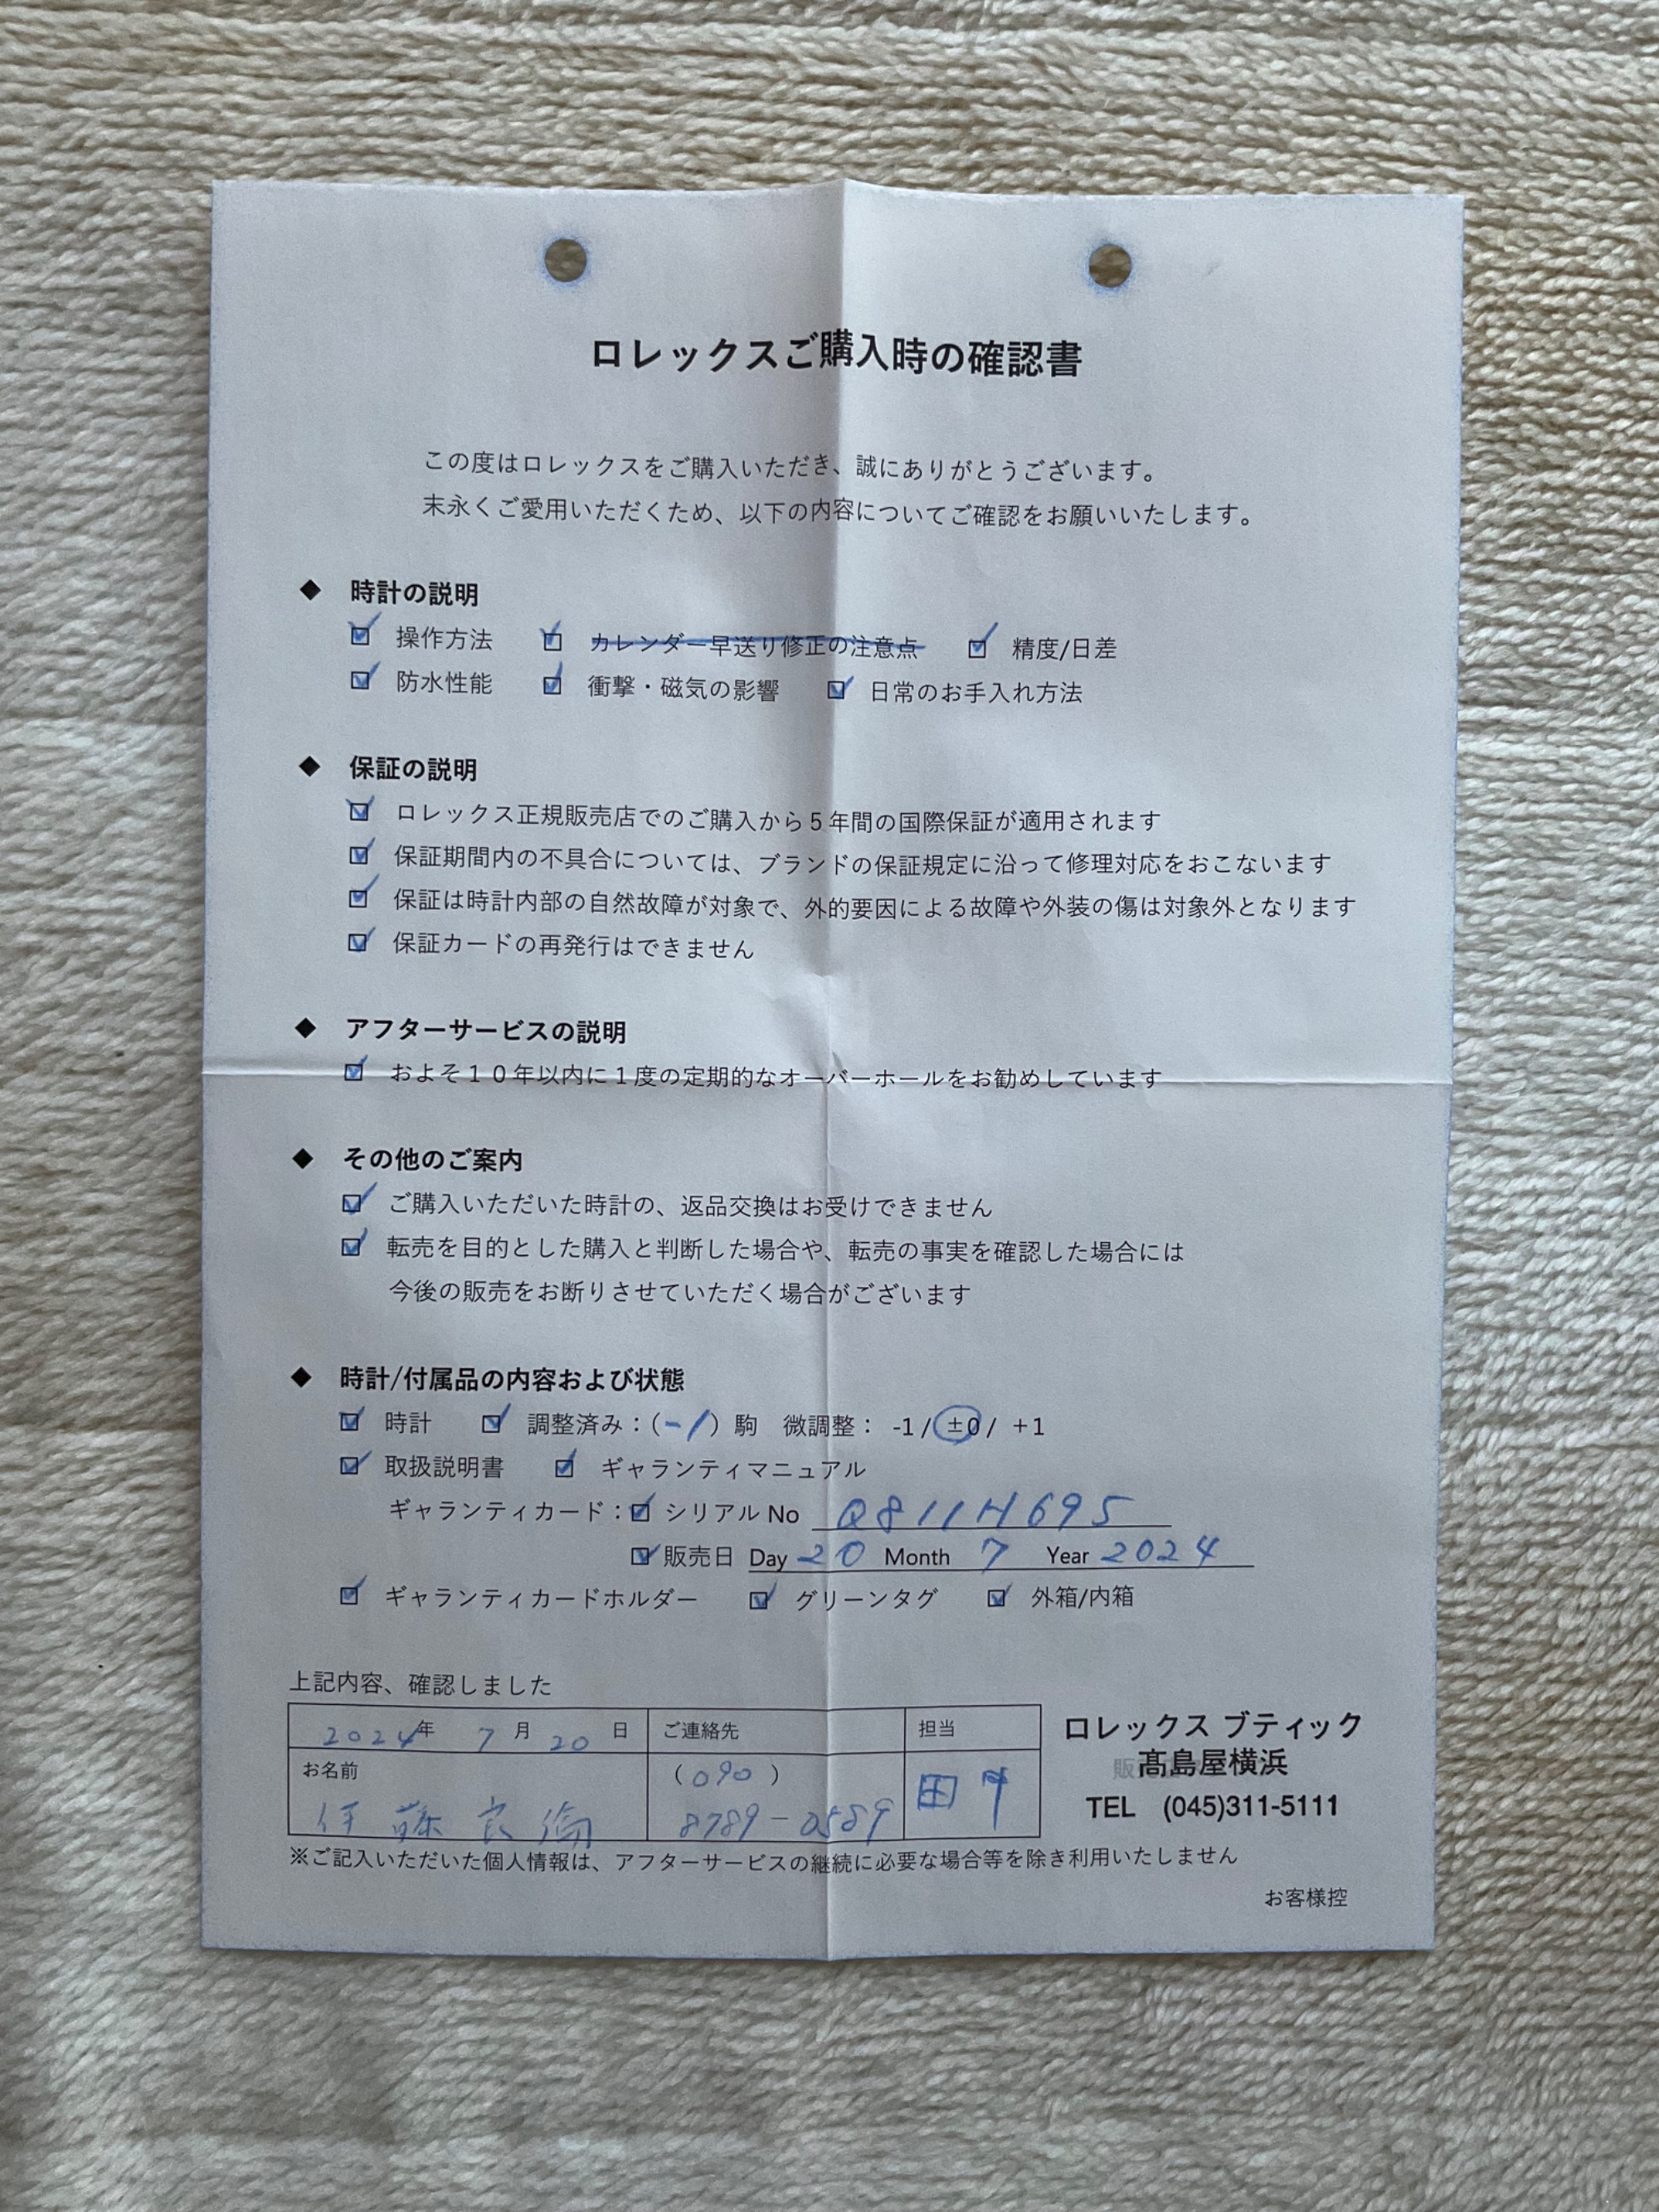 ロレックスご購入時の確認書
この度はロレックスをご購入いただき、誠にありがとうございます。
末永くご愛用いただくため、以下の内容についてご確認をお願いいたします。
◆ 時計の説明
☑ 操作方法 ☑ カレンダー早送り修正の注意点 ☑ 精度/日差
☑ 防水性能 ☑ 衝撃・磁気の影響 ☑ 日常のお手入れ方法
◆ 保証の説明
☑ ロレックス正規販売店でのご購入から5年間の国際保証が適用されます
☑ 保証期間内の不具合については、ブランドの保証規定に沿って修理対応をおこないます
☑ 保証は時計内部の自然故障が対象で、外的要因による故障や外装の傷は対象外となります
☑ 保証カードの再発行はできません
◆ アフターサービスの説明
☑ およそ10年以内に1度の定期的なオーバーホールをお勧めしています
◆ その他のご案内
☑ ご購入いただいた時計の、返品交換はお受けできません
☑ 転売を目的とした購入と判断した場合や、転売の事実を確認した場合には
今後の販売をお断りさせていただく場合がございます
◆ 時計/付属品の内容および状態
☑ 時計 ☑ 調整済み：(-1) 駒 微調整： -1 / ±0 / +1
☑ 取扱説明書 ☑ ギャランティマニュアル
ギャランティカード：☑ シリアル No Q811H695
☑ 販売日 Day 20 Month 7 Year 2024
☑ ギャランティカードホルダー ☑ グリーンタグ ☑ 外箱/内箱
上記内容、確認しました
2024年 7月 20日 ご連絡先 担当
お名前 (090)
伊藤良倫 8789-0589 田中
ロレックス ブティック
髙島屋横浜
TEL (045)311-5111
※ご記入いただいた個人情報は、アフターサービスの継続に必要な場合等を除き利用いたしません
お客様控